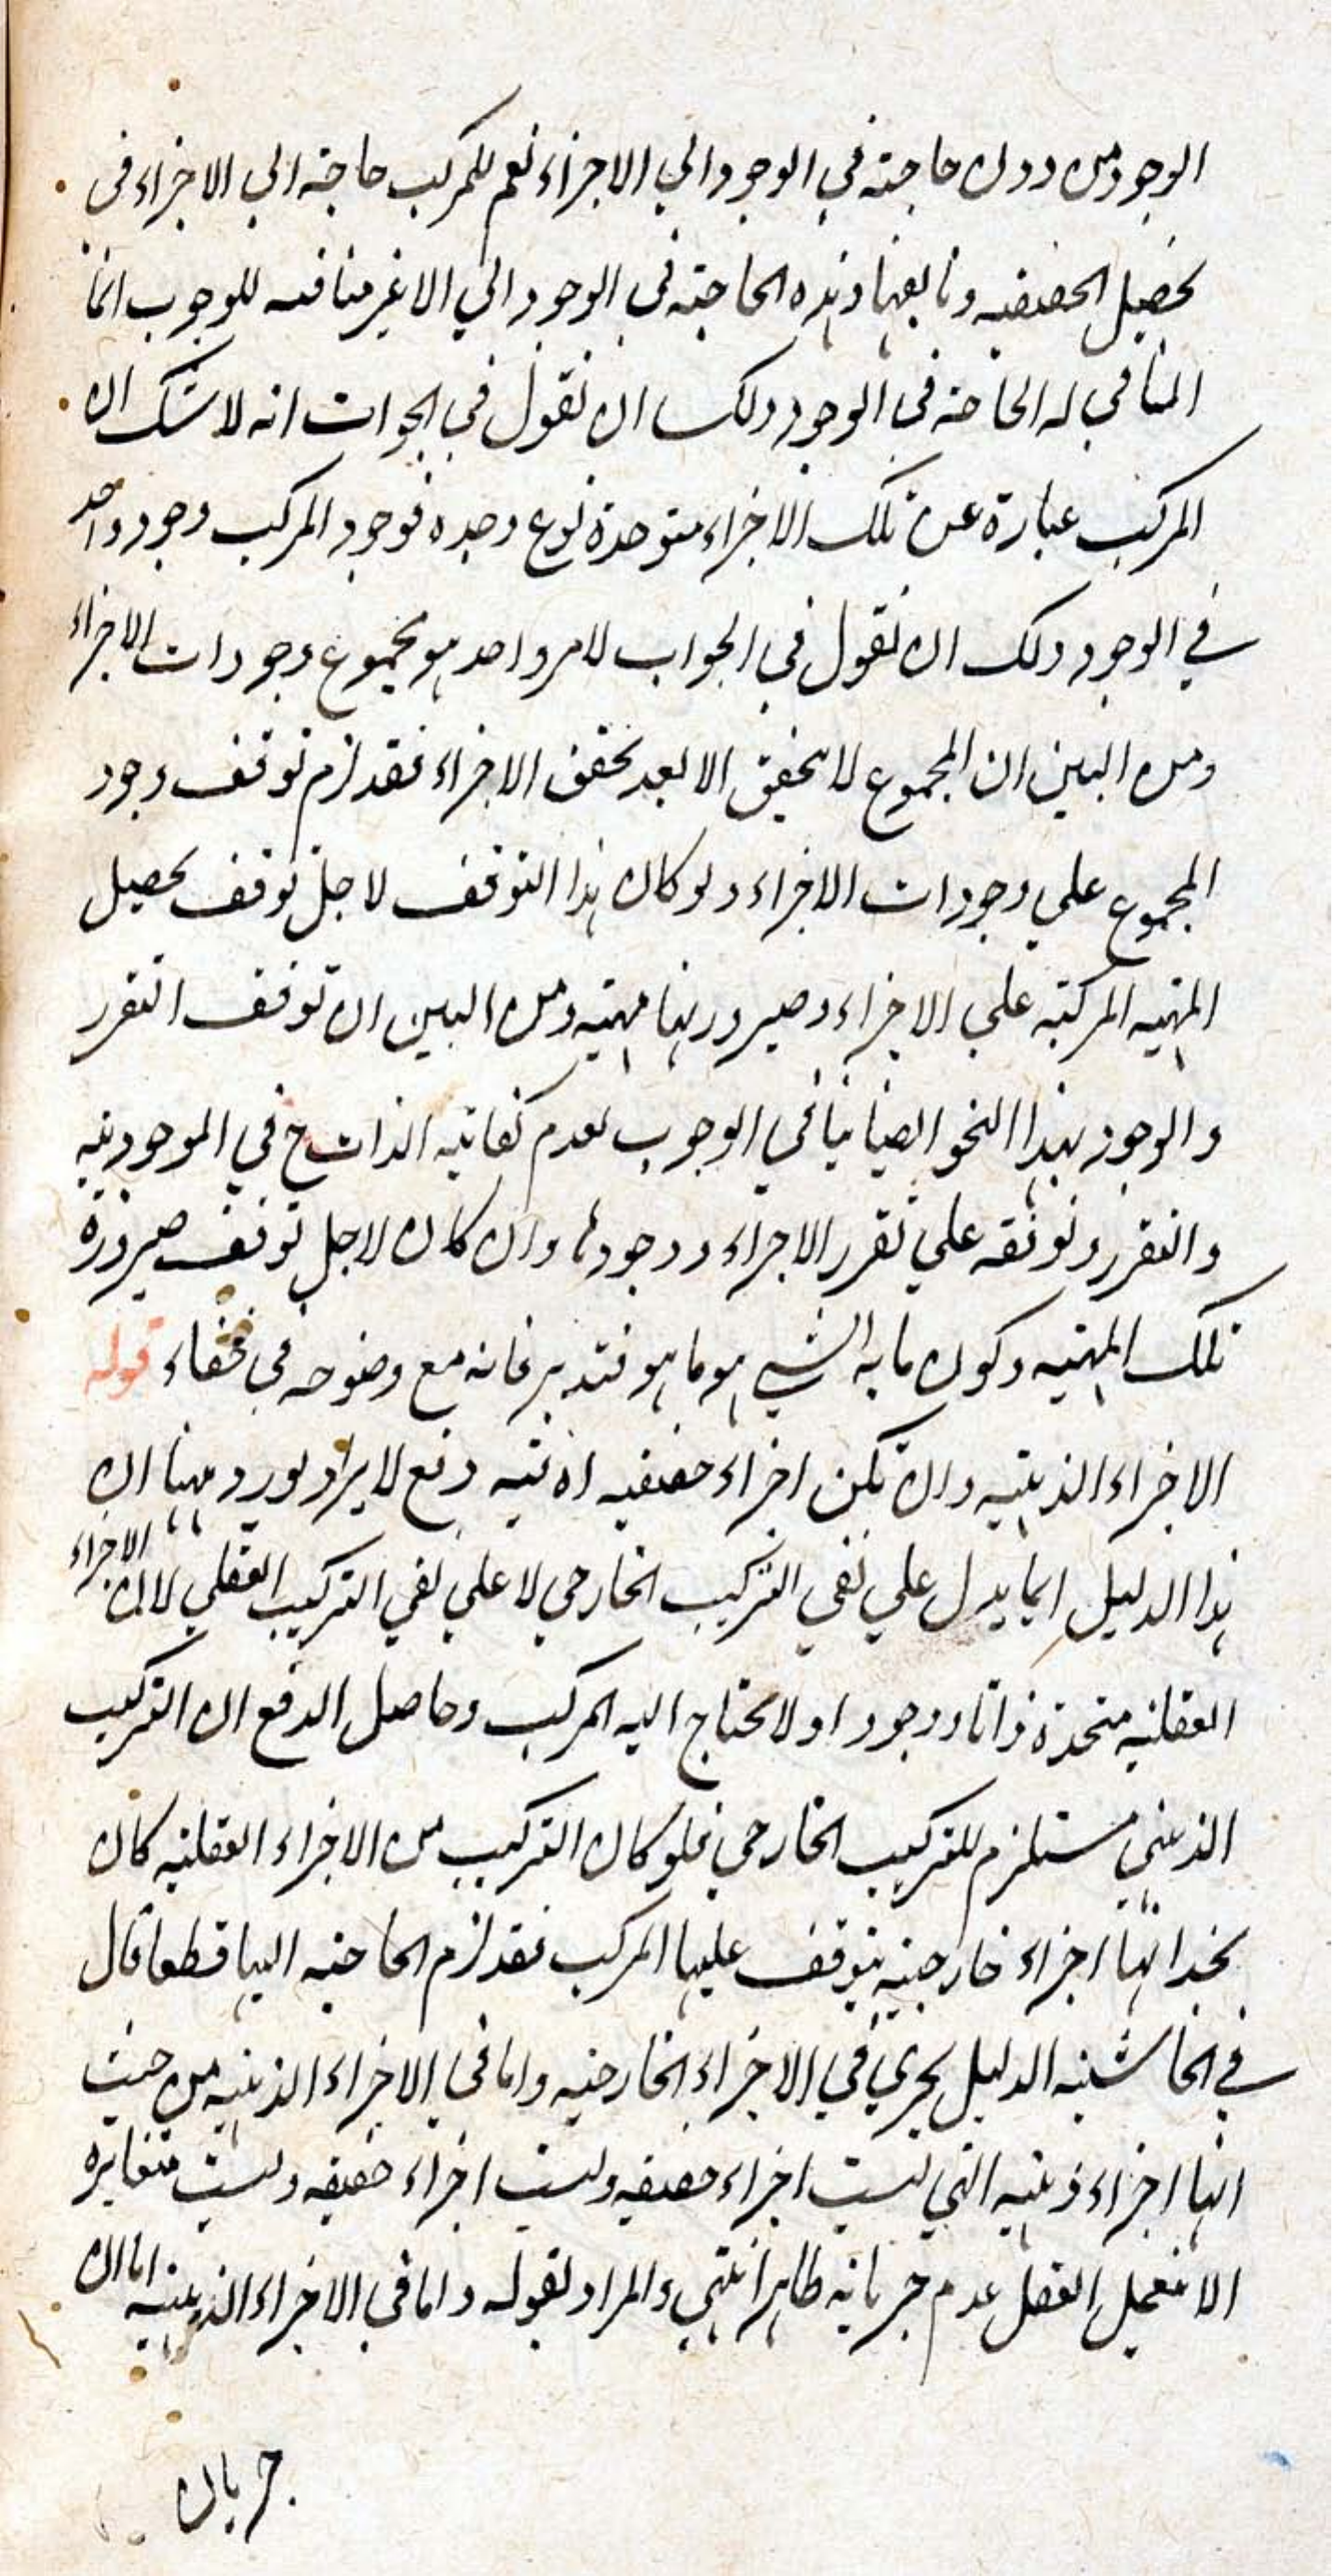 الوجود من دون حاجته في الوجود الي الاجزاء نعم للمركب حاجة الي الاجزاء في
تحصيل الحقيقيه وتابعهما وهذه الحاجته في الوجود الي الاغير منافيه للوجوب انما
المنافي له الحاجة في الوجود ولك ان نقول في الجواب انه لا شك ان
المركب عبارة عن تلك الاجزاء متوحدة نوع وحده فوجود المركب وجود واحد
في الوجود ولك ان نقول في الجواب لامر واحد هو مجموع وجودات الاجزاء
ومن البين ان المجموع لا يتحقق الا بعد تحقق الاجزاء فقد لزم توقف وجود
المجموع علي وجودات الاجزاء ولو كان هذا التوقف لاجل توقف تحصيل
المهيه المركبة علي الاجزاء وصيرورتها مهيته ومن البين ان توقف التقرر
والوجود بهذا النحو ايضا ينافي الوجوب لعدم كفاية الذات ح في الموجوديه
والتقرر وتوقفه علي تقرر الاجزاء ووجودها وان كان لاجل توقف صيرورة
تلك المهيه وكون ما به الشي هو ما هو فتدبر فانه مع وضوحه في خفاء قوله
الاجزاء الذهنيه وان تكن اجزاء حقيقيه اه تنبيه دفع لايراد يورد ههنا ان
هذا الدليل انما يدل علي نفي التركيب الخارجي لا علي نفي التركيب العقلي لان الاجزاء
العقليه متحدة ذاتا ووجودا ولا يحتاج اليه المركب وحاصل الدفع ان التركيب
الذهني مستلزم للتركيب الخارجي فلو كان التركيب من الاجزاء العقليه كان
بحذائها اجزاء خارجيه يتوقف عليها المركب فقد لزم الحاجته اليها قطعا قال
في الحاشيه الدليل يجري في الاجزاء الخارجيه واما في الاجزاء الذهنيه من حيث
انها اجزاء ذهنيه التي ليست اجزاء حقيقه وليست اجزاء حقيقه وليست متغايره
الا بتعمل العقل عدم جريانه ظاهر انتهي والمراد بقوله واما في الاجزاء الذهنيه اما ان
جريان